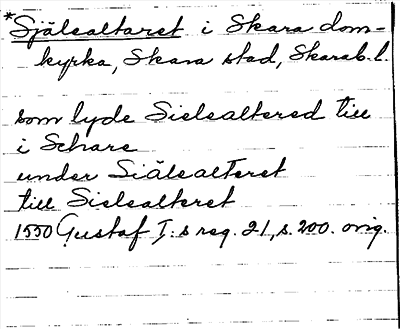 *Själsaltaret i Skara dom-
kyrka, Skara stad, Skarab. l.
som lyde Sielsaltered till
i Schare
under Siälsalteret
till Sielsalteret
1550 Gustaf I:s reg. 21, s. 200. orig.